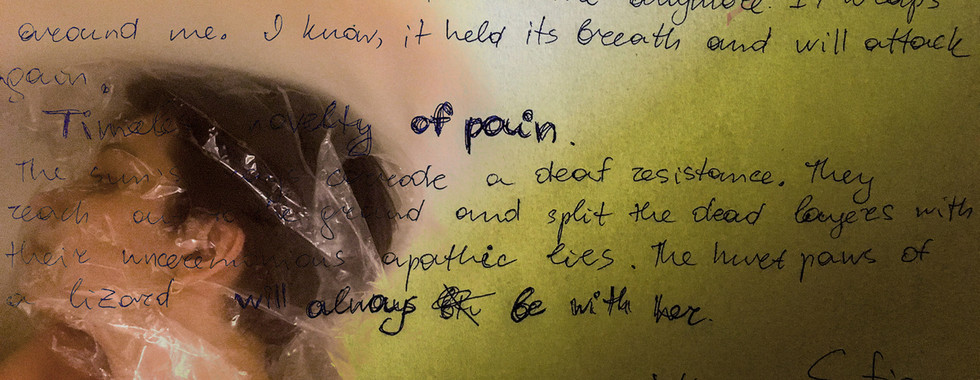 anymore. It wraps
around me. I know, it held its breath and will attack
again.
Timeless novelty of pain.
The sun's erode a deaf resistance. They
reach the ground and split the dead layers with
their unceremonious apathic lies. The hurt paws of
a lizard will always be with her.